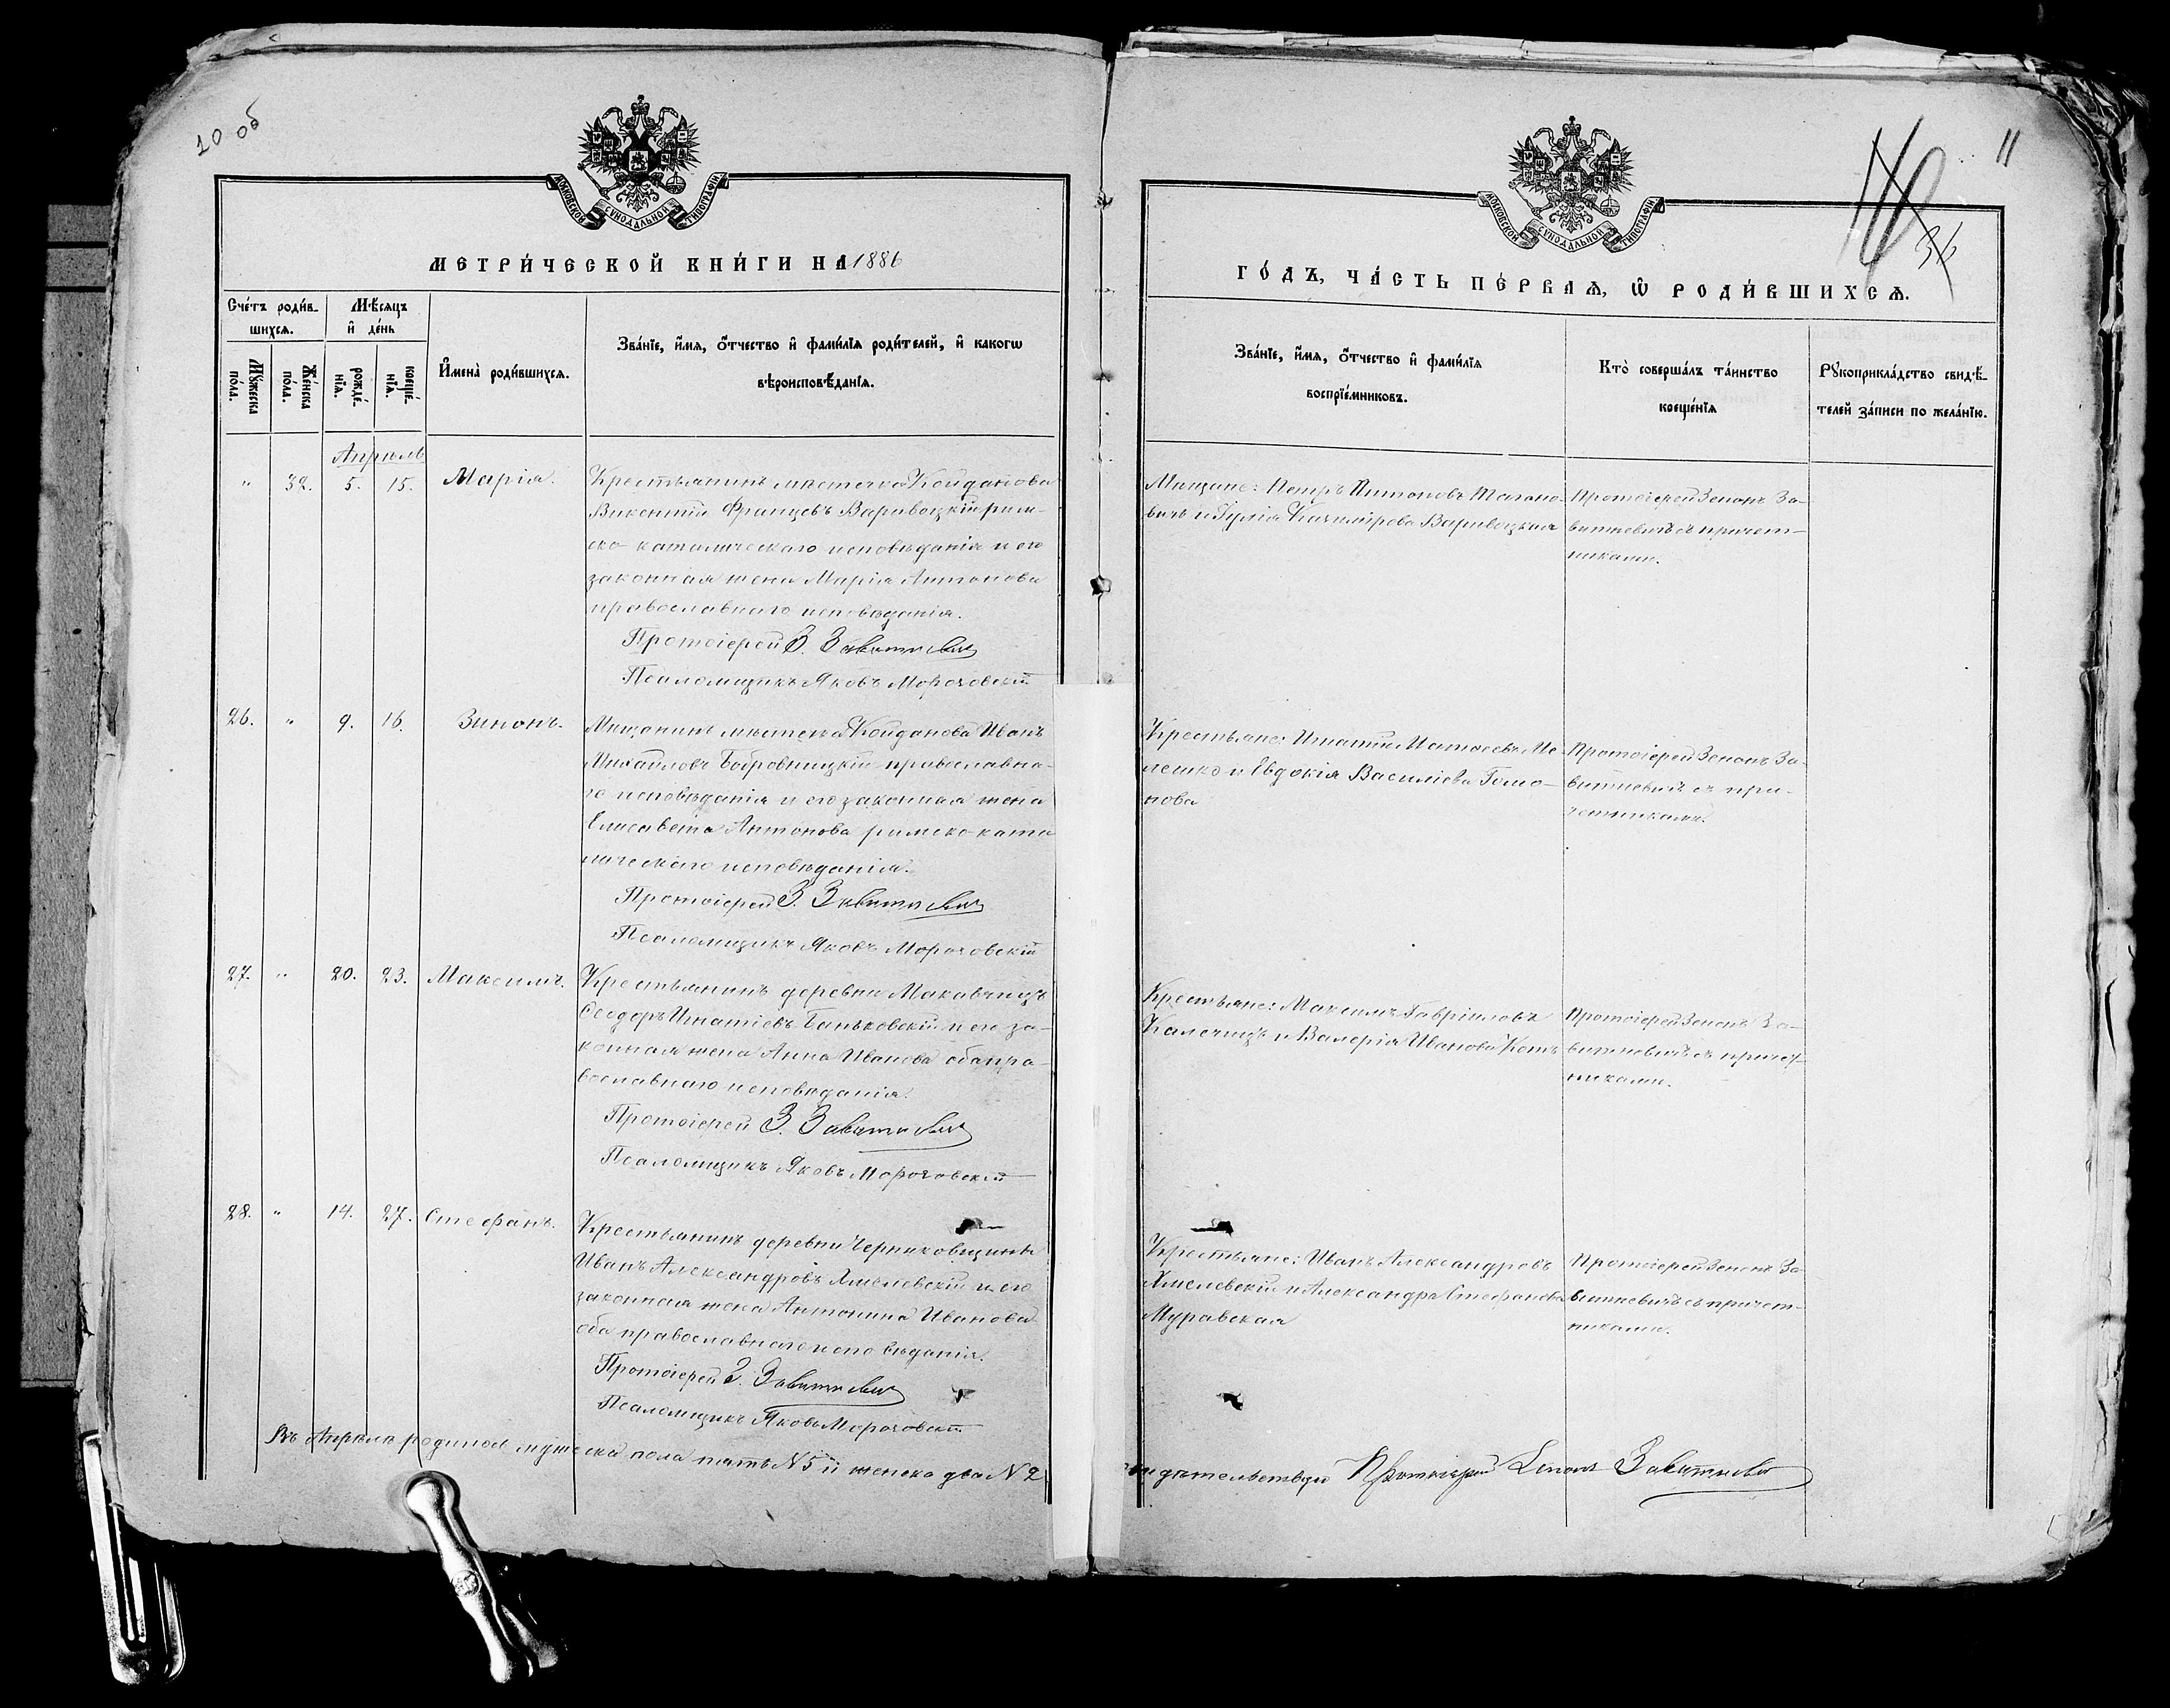 10 об
МОСКОВСКОЙ СѴНОДАЛЬНОЙ ТИПОГРАФІИ
МЕТРИ́ЧЕСКОЙ КНИ́ГИ НА 1886
Сче́тъ роди́в-
шихся.
Мѣ́сяцъ
и҆ де́нь
Мꙋ́жеска
по́ла.
Же́нска
по́ла.
рожде́-
нїѧ.
креще́-
нїѧ.
И҆мена̀ роди́вшихсѧ.
Зва́нїе, и҆́мѧ, ѻ҆́тчество и҆ фами́лїѧ роди́телей, и҆ какогѡ
вѣроисповѣ́данїѧ.
Апрѣль
" 32. 5. 15. Марія.
Крестьянинъ мѣстечка Койданова
Викентій Францевъ Варивоцкій рим-
ско-католическаго исповѣданія и его
законная жена Марія Антонова
православнаго исповѣданія.
Протоіерей З. Завитневичъ
Псаломщикъ Яковъ Мороховскій
26. " 9. 16. Зинонъ.
Мѣщанинъ мѣстечка Койданова Иванъ
Михайловъ Бобровницкій православна-
го исповѣданія и его законная жена
Елисавета Антонова римско-като
лическаго исповѣданія.
Протоіерей З. Завитневичъ
Псаломщикъ Яковъ Мороховскій
27. " 20. 23. Максимъ.
Крестьянинъ деревни Макавчицъ
Ѳеодоръ Игнатіевъ Баньковскій и его за-
конная жена Анна Иванова оба пра-
вославнаго исповѣданія.
Протоіерей З. Завитневичъ
Псаломщикъ Яковъ Мороховскій
28. " 14. 27. Стефанъ.
Крестьянинъ деревни Черниковщины
Иванъ Александровъ Хмелевскій и его
законная жена Антонина Иванова
оба православнаго исповѣданія.
Протоіерей З. Завитневичъ
Псаломщикъ Яковъ Мороховскій
Въ Апрѣлѣ родилось мужеска пола пять № 5 и женска два № 2
11
36
МОСКОВСКОЙ СѴНОДАЛЬНОЙ ТИПОГРАФІИ
ГО́ДЪ, ЧА́СТЬ ПЕ́РВАѦ, Ѡ҆ РОДИ́ВШИХСѦ.
Зва́нїе, и҆́мѧ, ѻ҆́тчество и҆ фами́лїѧ
воспрїе́мниковъ.
Кто̀ соверша́лъ та́инство
креще́нїѧ
Рꙋкоприкла́дство свидѣ́-
телей за́писи по жела́нїю.
Мѣщане: Петръ Антоновъ
вичъ и Юлія Казимірова Варивоцкая
Протоіерей Зенонъ За-
витневичъ съ причет-
никами.
Крестьяне: Игнатій Матѳеевъ Ме-
лешко и Евдокія Василіева Гомо-
нова
Протоіерей Зенонъ За-
витневичъ съ при-
четниками.
Крестьяне: Максимъ Гавріиловъ
Калечицъ и Валерія Иванова Котъ
Протоіерей Зенонъ За-
витневичъ съ причет-
никами.
Крестьяне: Иванъ Александровъ
Хмелевскій и Александра Стефанова
Муравская
Протоіерей Зенонъ За-
витневичъ съ причет-
никами.
Протоіерей Зенонъ Завитневичъ